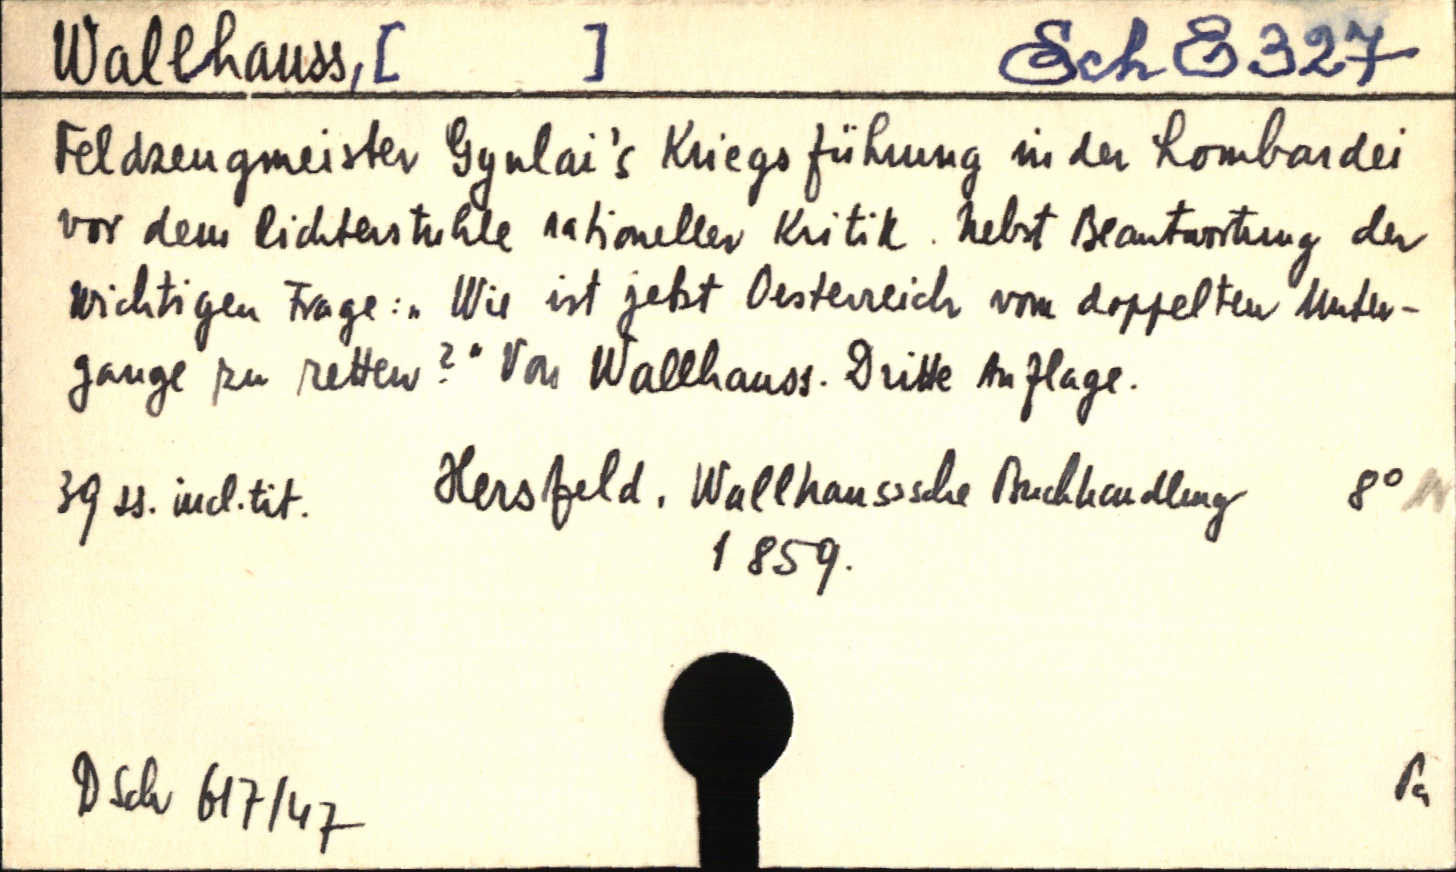 Wallhauss, [ ] Sch E 327
Feldzeugmeister Gyulai's Kriegsführung in der Lombardei
vor dem Richterstuhle rationeller Kritik. Nebst Beantwortung der
wichtigen Frage: „Wie ist jetzt Oesterreich vom doppelten Unter-
gange zu retten?“ Von Wallhauss. Dritte Auflage.
39 ss. incl. tit. Hersfeld, Wallhausssche Buchhandlung 8°
1859.
D Sch 617/47 Pa